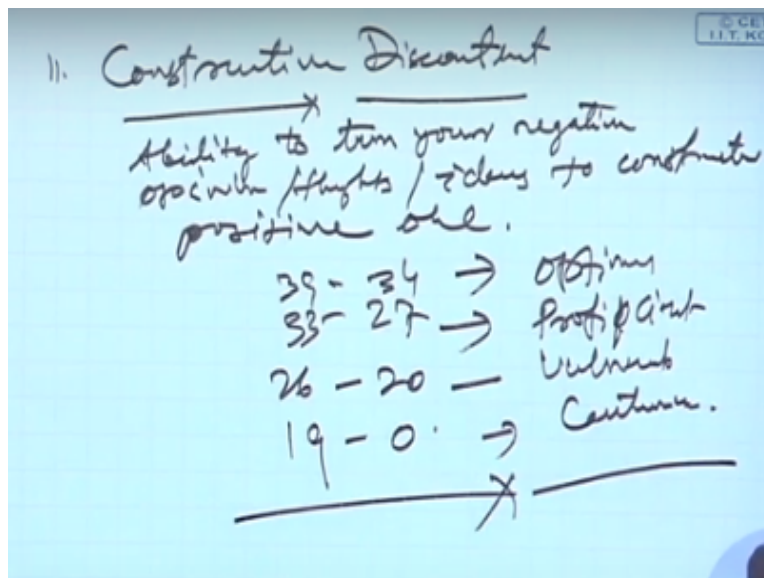 © CET
I.I.T. KG
11. Constructive Discontent
Ability to turn your negative
opinion / thughts / ideas to constructive
positive one.
39 - 34 → Optimum
33 - 27 → Proficient
26 - 20 — Vulnerab
19 - 0 → Cautionar.